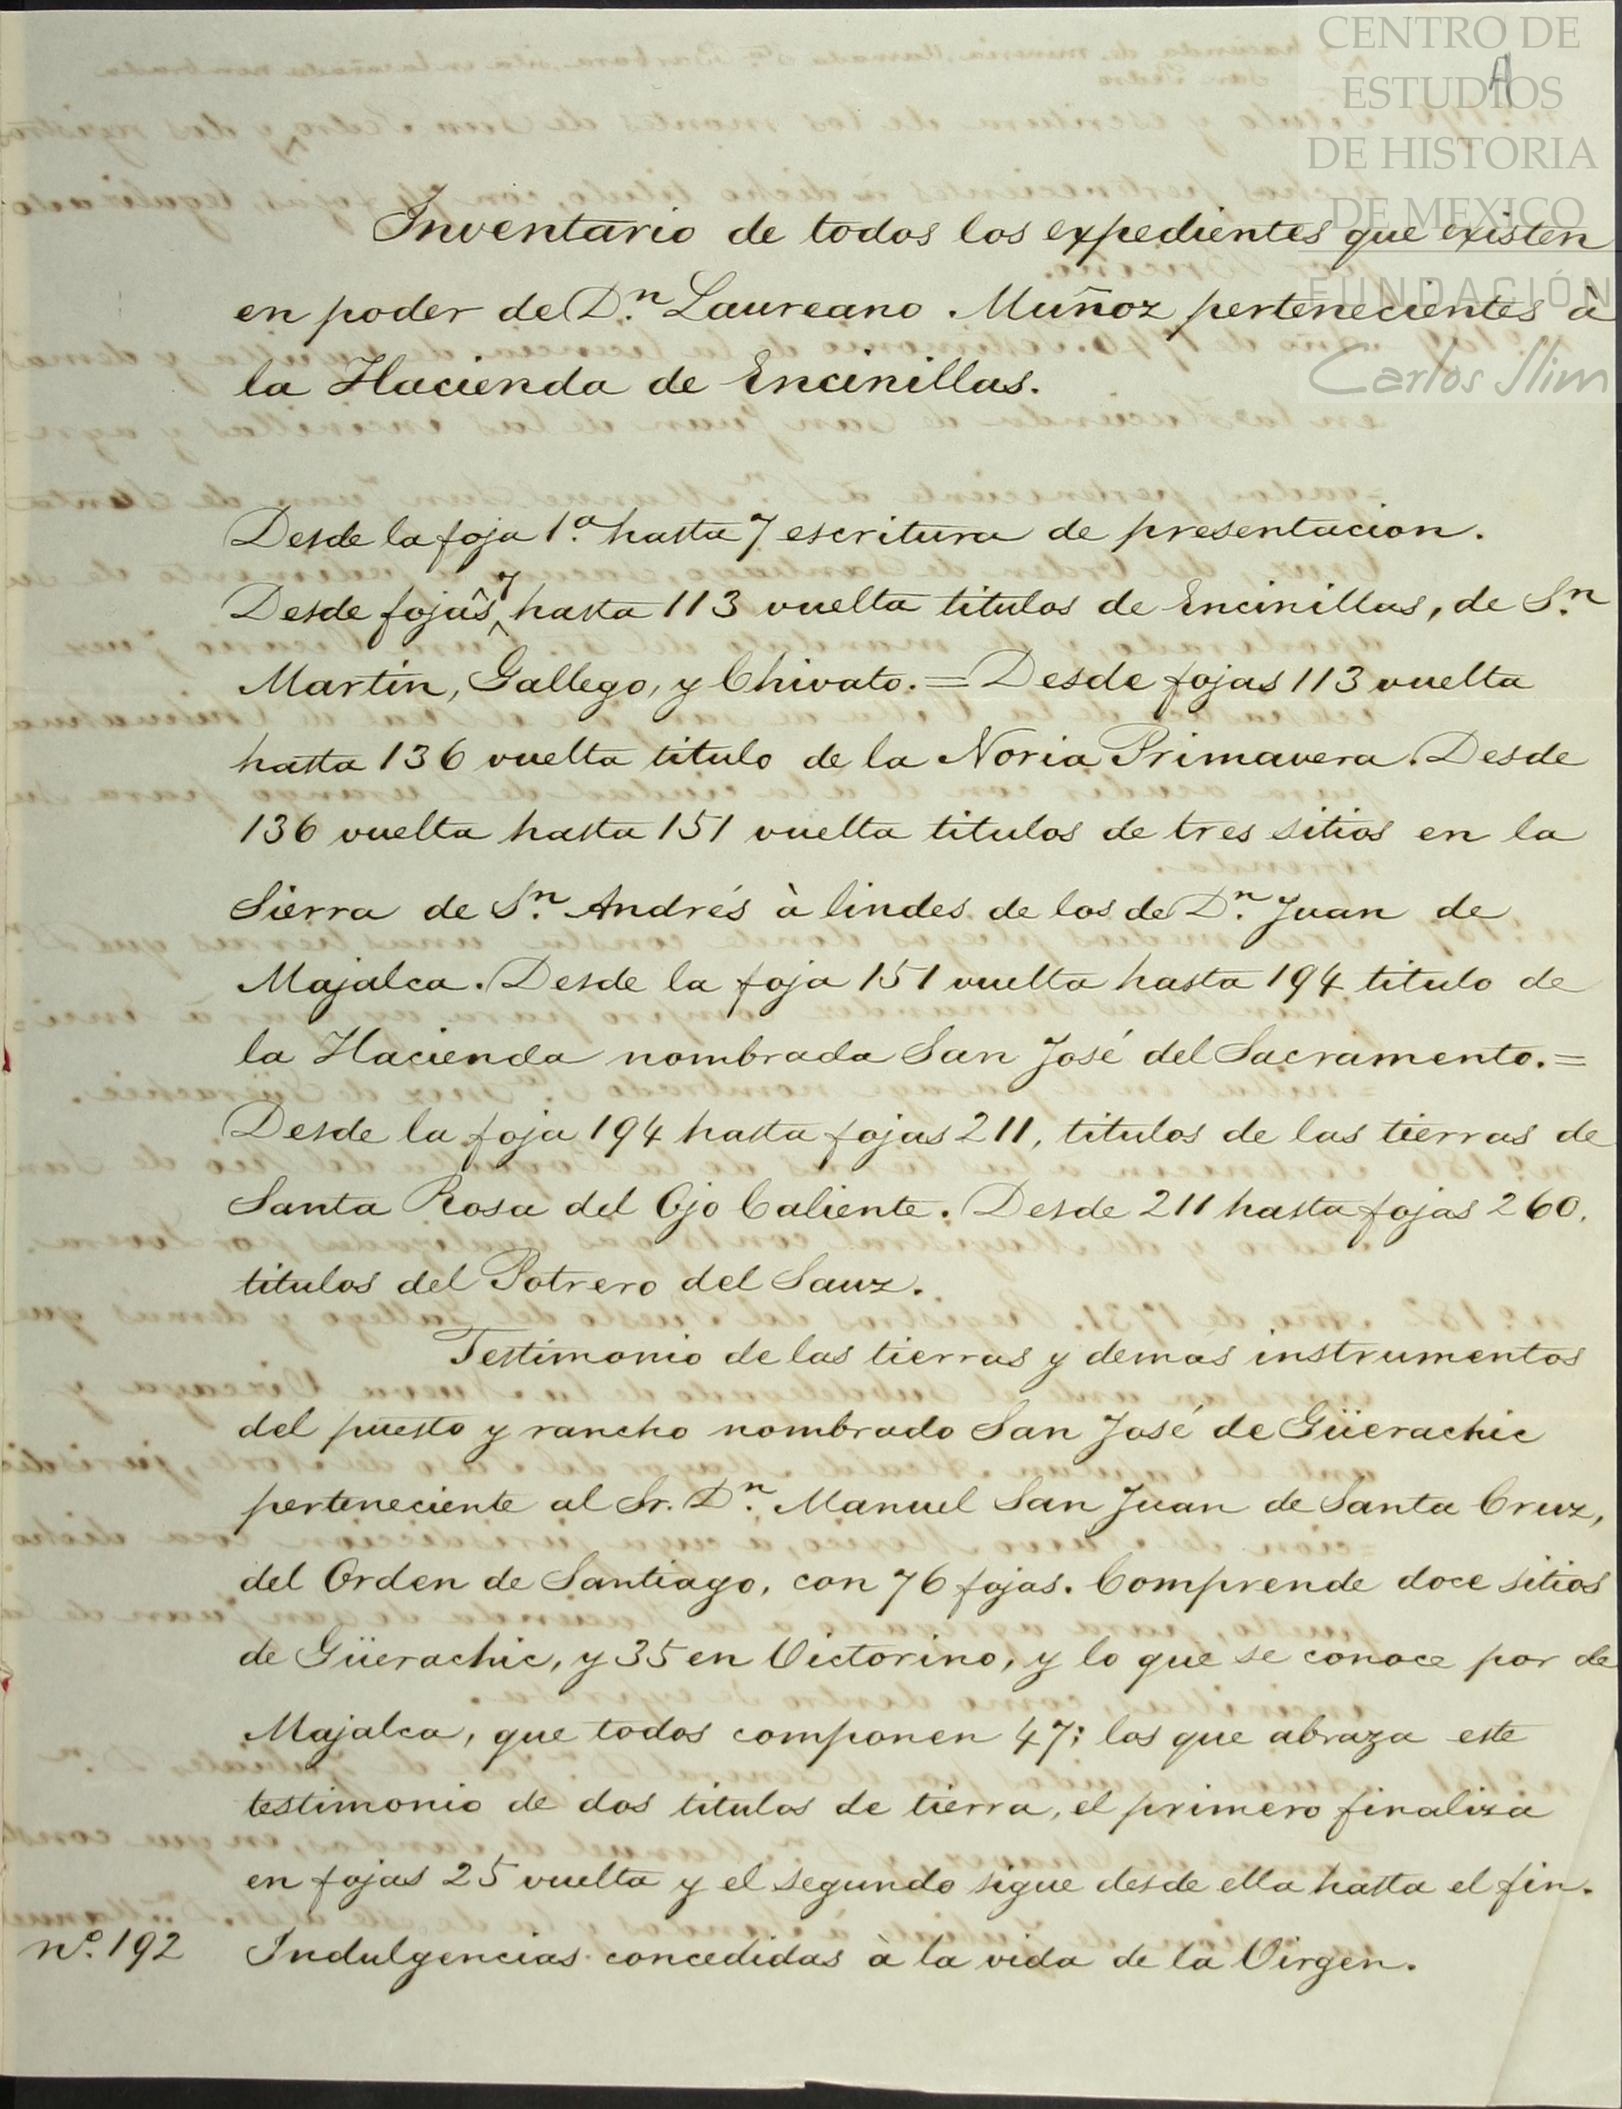 CENTRO DE
ESTUDIOS
DE HISTORIA
DE MEXICO
FUNDACIÓN
Carlos Slim
A
Inventario de todos los expedientes que existen
en poder de Dn. Laureano Muñoz pertenecientes à
la Hacienda de Encinillas.
Desde la foja 1a. hasta 7 escritura de presentacion.
Desde fojas 7 hasta 113 vuelta titulos de Encinillas, de Sn.
Martin, Gallego, y Chivato.= Desde fojas 113 vuelta
hasta 136 vuelta titulo de la Noria Primavera. Desde
136 vuelta hasta 151 vuelta titulos de tres sitios en la
Sierra de Sn. Andrés à lindes de los de Dn. Juan de
Majalca. Desde la foja 151 vuelta hasta 194 titulo de
la Hacienda nombrada San José del Sacramento.=
Desde la foja 194 hasta fojas 211, titulos de las tierras de
Santa Rosa del Ojo Caliente. Desde 211 hasta fojas 260.
titulos del Potrero del Sauz.
Testimonio de las tierras y demas instrumentos
del puesto y rancho nombrado San José de Güerachic
perteneciente al Sr. Dn. Manuel San Juan de Santa Cruz,
del Orden de Santiago, con 76 fojas. Comprende doce sitios
de Güerachic, y 35 en Victorino, y lo que se conoce por de
Majalca, que todos componen 47: los que abraza este
testimonio de dos titulos de tierra, el primero finaliza
en fojas 25 vuelta y el segundo sigue desde ella hasta el fin.
no. 192 Indulgencias concedidas à la vida de la Virgen.